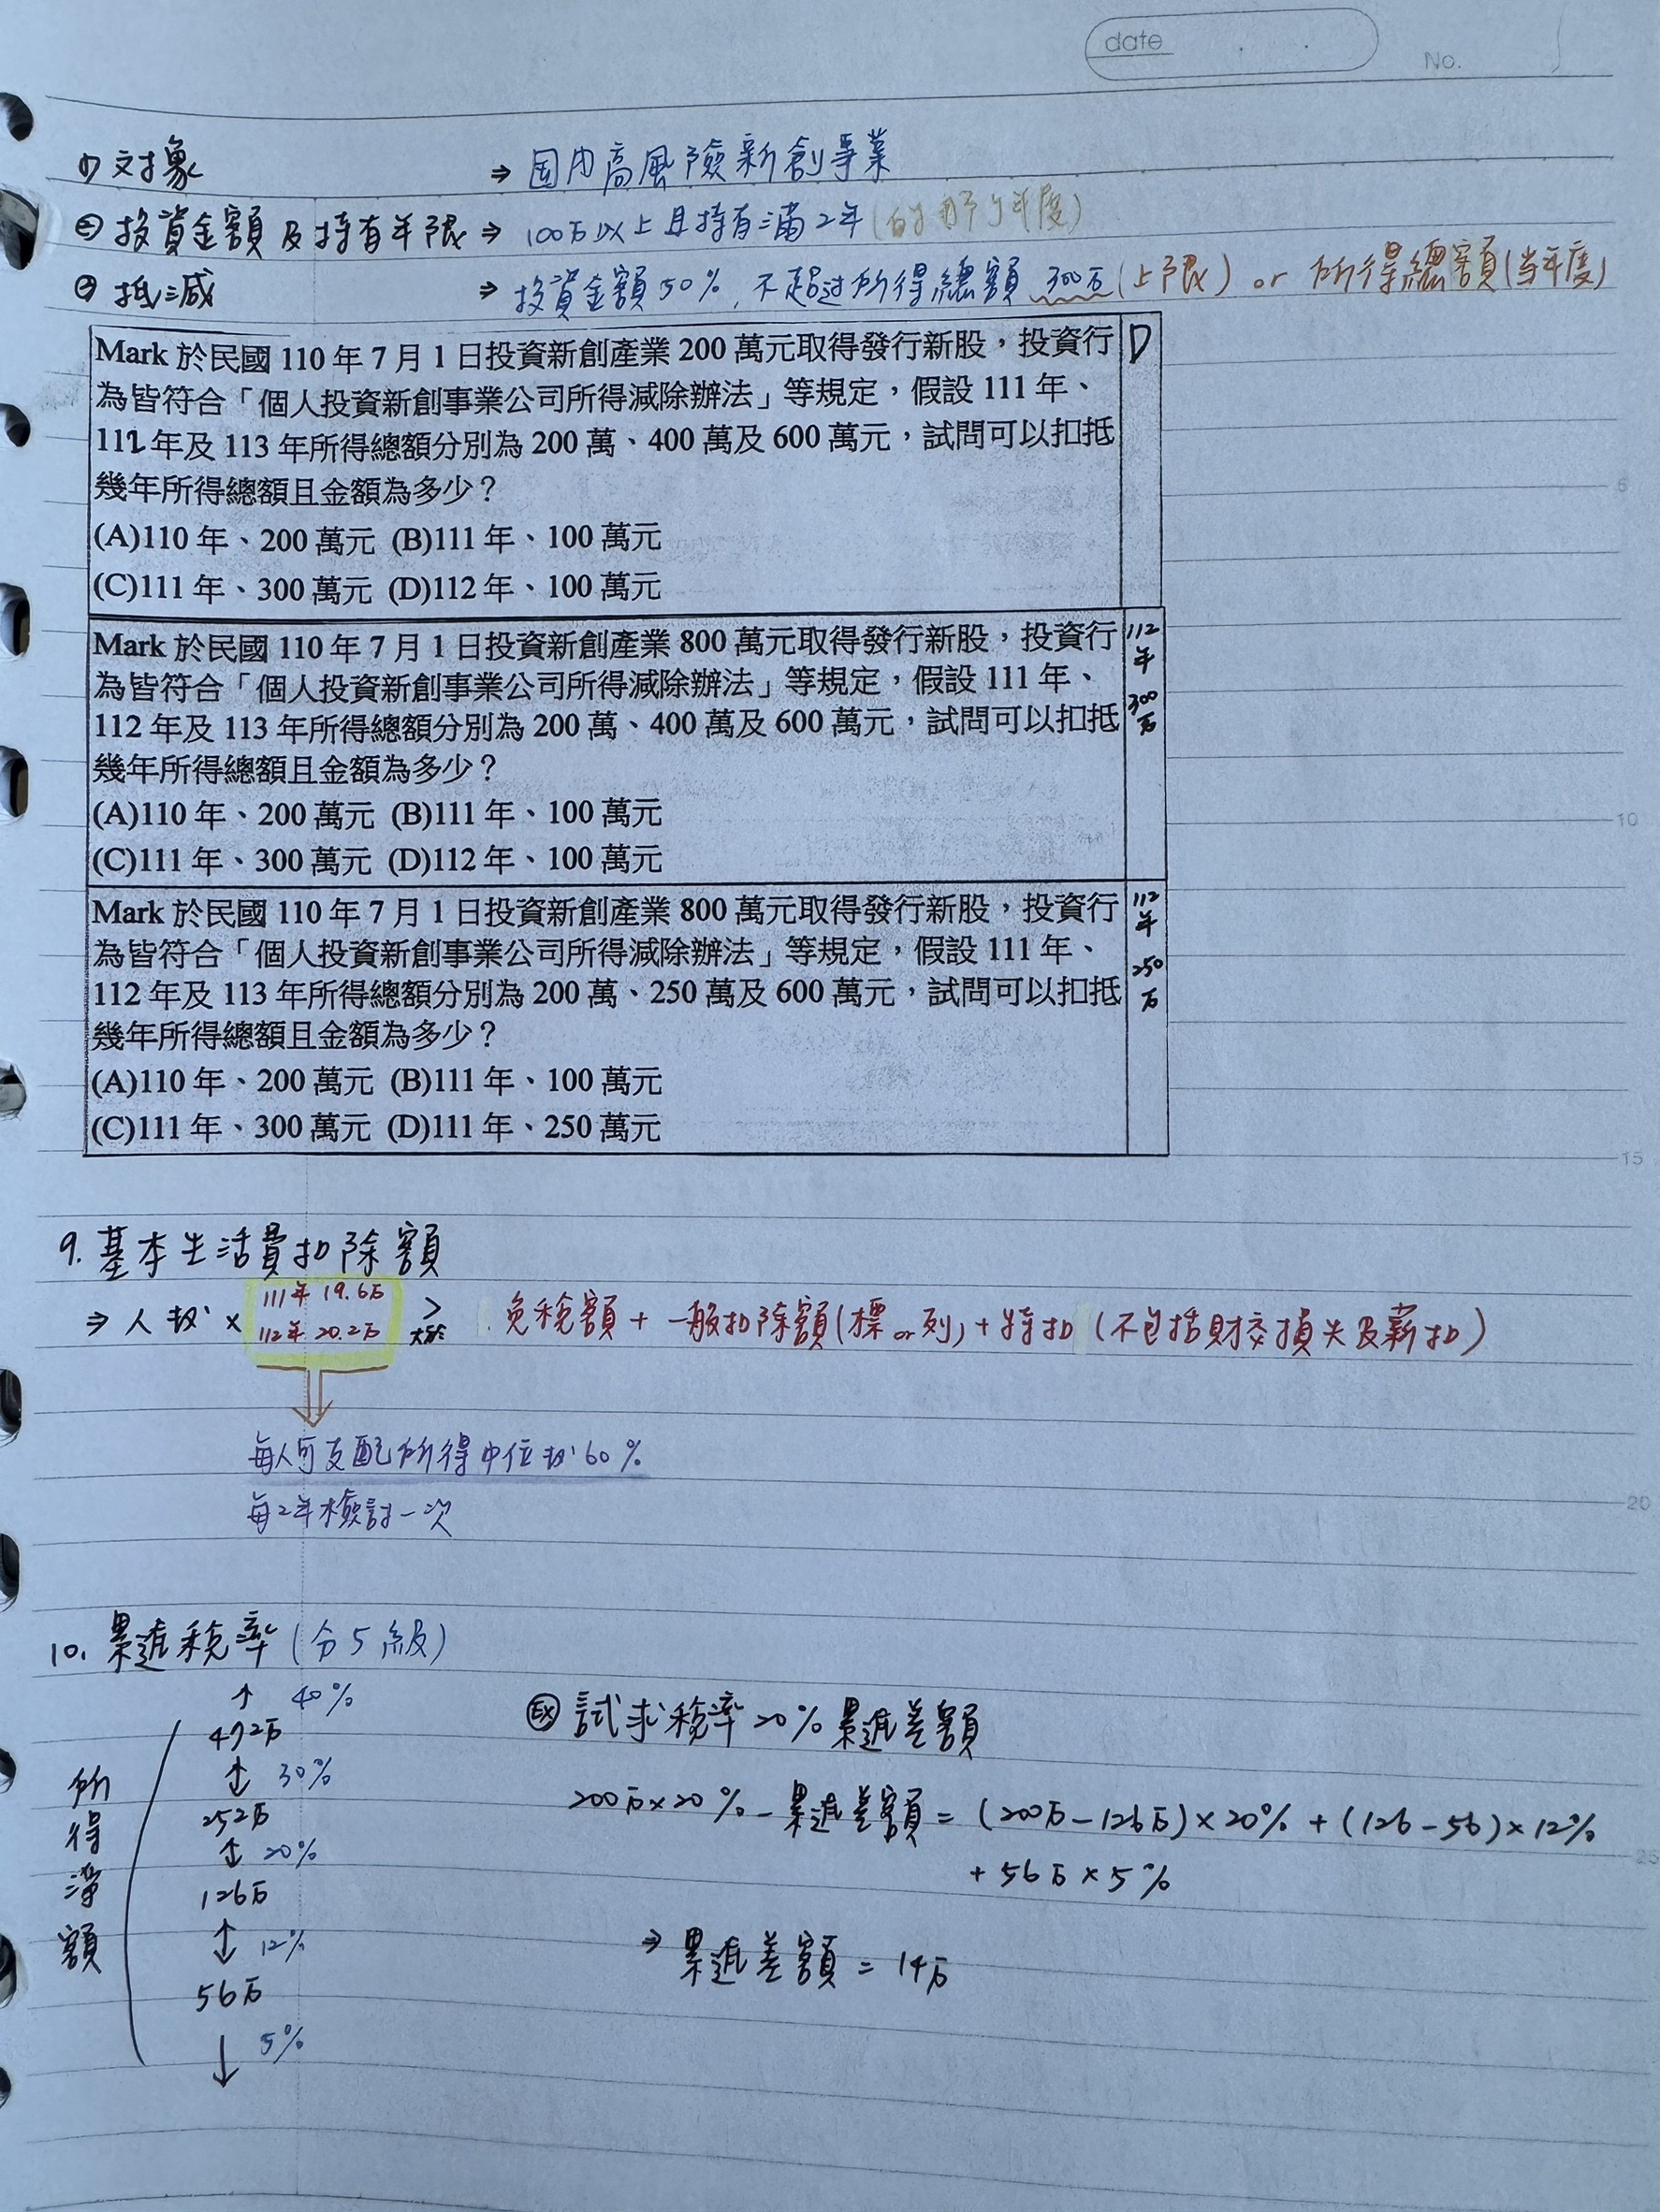 date
No.
(1) 对象 ⇒ 国內高風險新創事業
(2) 投資金額及持有年限 ⇒ 100万以上且持有滿2年(的那个年度)
(3) 抵減 ⇒ 投資金額50%, 不超过所得總額 300万(上限) or 所得總額(当年度)
Mark 於民國 110 年 7 月 1 日投資新創產業 200 萬元取得發行新股，投資行 D
為皆符合「個人投資新創事業公司所得減除辦法」等規定，假設 111 年、
112 年及 113 年所得總額分別為 200 萬、400 萬及 600 萬元，試問可以扣抵
幾年所得總額且金額為多少？
(A)110 年、200 萬元 (B)111 年、100 萬元
(C)111 年、300 萬元 (D)112 年、100 萬元
Mark 於民國 110 年 7 月 1 日投資新創產業 800 萬元取得發行新股，投資行
為皆符合「個人投資新創事業公司所得減除辦法」等規定，假設 111 年、
112 年及 113 年所得總額分別為 200 萬、400 萬及 600 萬元，試問可以扣抵
幾年所得總額且金額為多少？
(A)110 年、200 萬元 (B)111 年、100 萬元
(C)111 年、300 萬元 (D)112 年、100 萬元
112
年
300
万
Mark 於民國 110 年 7 月 1 日投資新創產業 800 萬元取得發行新股，投資行
為皆符合「個人投資新創事業公司所得減除辦法」等規定，假設 111 年、
112 年及 113 年所得總額分別為 200 萬、250 萬及 600 萬元，試問可以扣抵
幾年所得總額且金額為多少？
(A)110 年、200 萬元 (B)111 年、100 萬元
(C)111 年、300 萬元 (D)111 年、250 萬元
112
年
250
万
5
10
15
20
25
9. 基本生活費扣除額
⇒ 人数 × 111年 19.6万 112年 20.2万 > 大於 免稅額 + 一般扣除額(標 or 列) + 特扣 (不包括財交損失及薪扣)
每人可支配所得中位数60%
每2年檢討一次
10. 累進稅率 (分5級)
所得淨額
↑ 40%
472万
↕ 30%
252万
↕ 20%
126万
↕ 12%
56万
↓ 5%
EX 試求稅率20%累進差額
200万×20% - 累進差額 = (200万-126万)×20% + (126-56)×12%
+ 56万×5%
⇒ 累進差額 = 14万